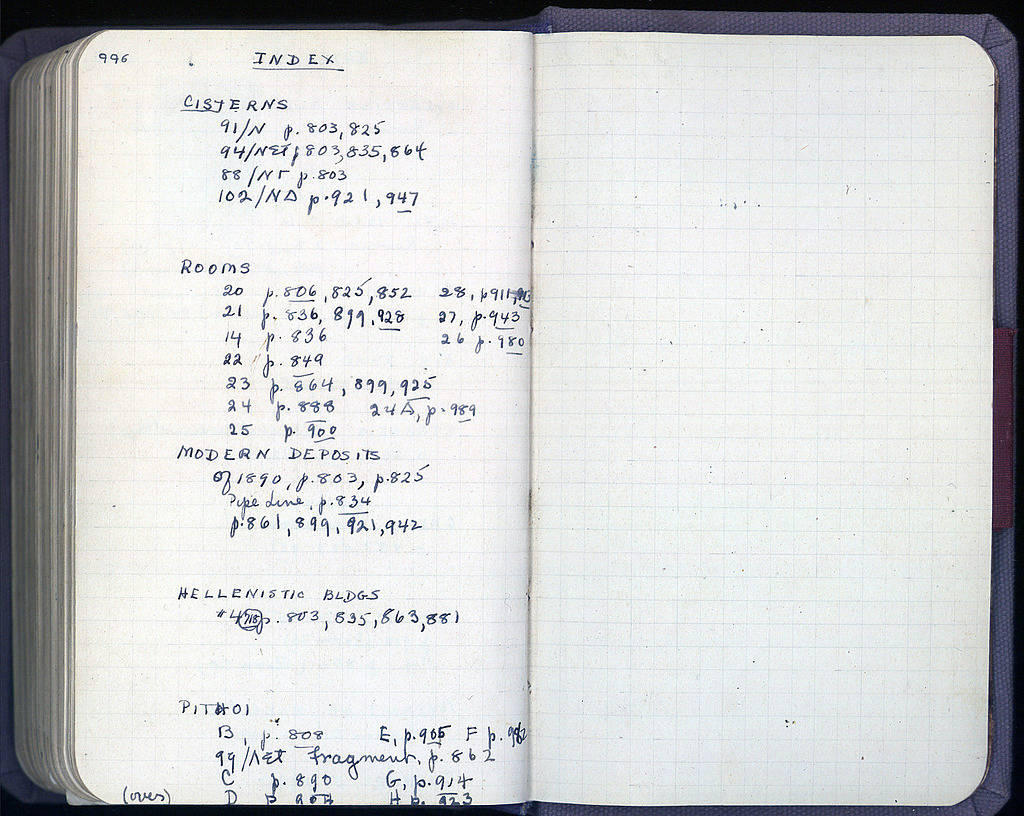 996 INDEX
CISTERNS
91/N p. 803, 825
94/ 803, 835, 864
88/NΓ p. 803
102/NΔ p. 921, 947
ROOMS
20 p. 806, 825, 852 28, p 911,
21 p. 836, 899, 928 27, p. 943
14 p. 836 26 p. 980
22 p. 849
23 p. 864, 899, 925
24 p. 888 24 Δ, p. 989
25 p. 900
MODERN DEPOSITS
of 1890, p. 803, p. 825
Pipe Line, p. 834
p. 861, 899, 921, 942
HELLENISTIC BLDGS
#4 p. 803, 835, 863, 881
PITHOI
B, p. 808 E, p. 905 F p.
99/ fragment, p. 862
C p. 890 G, p. 914
(over) D p. H p. 923